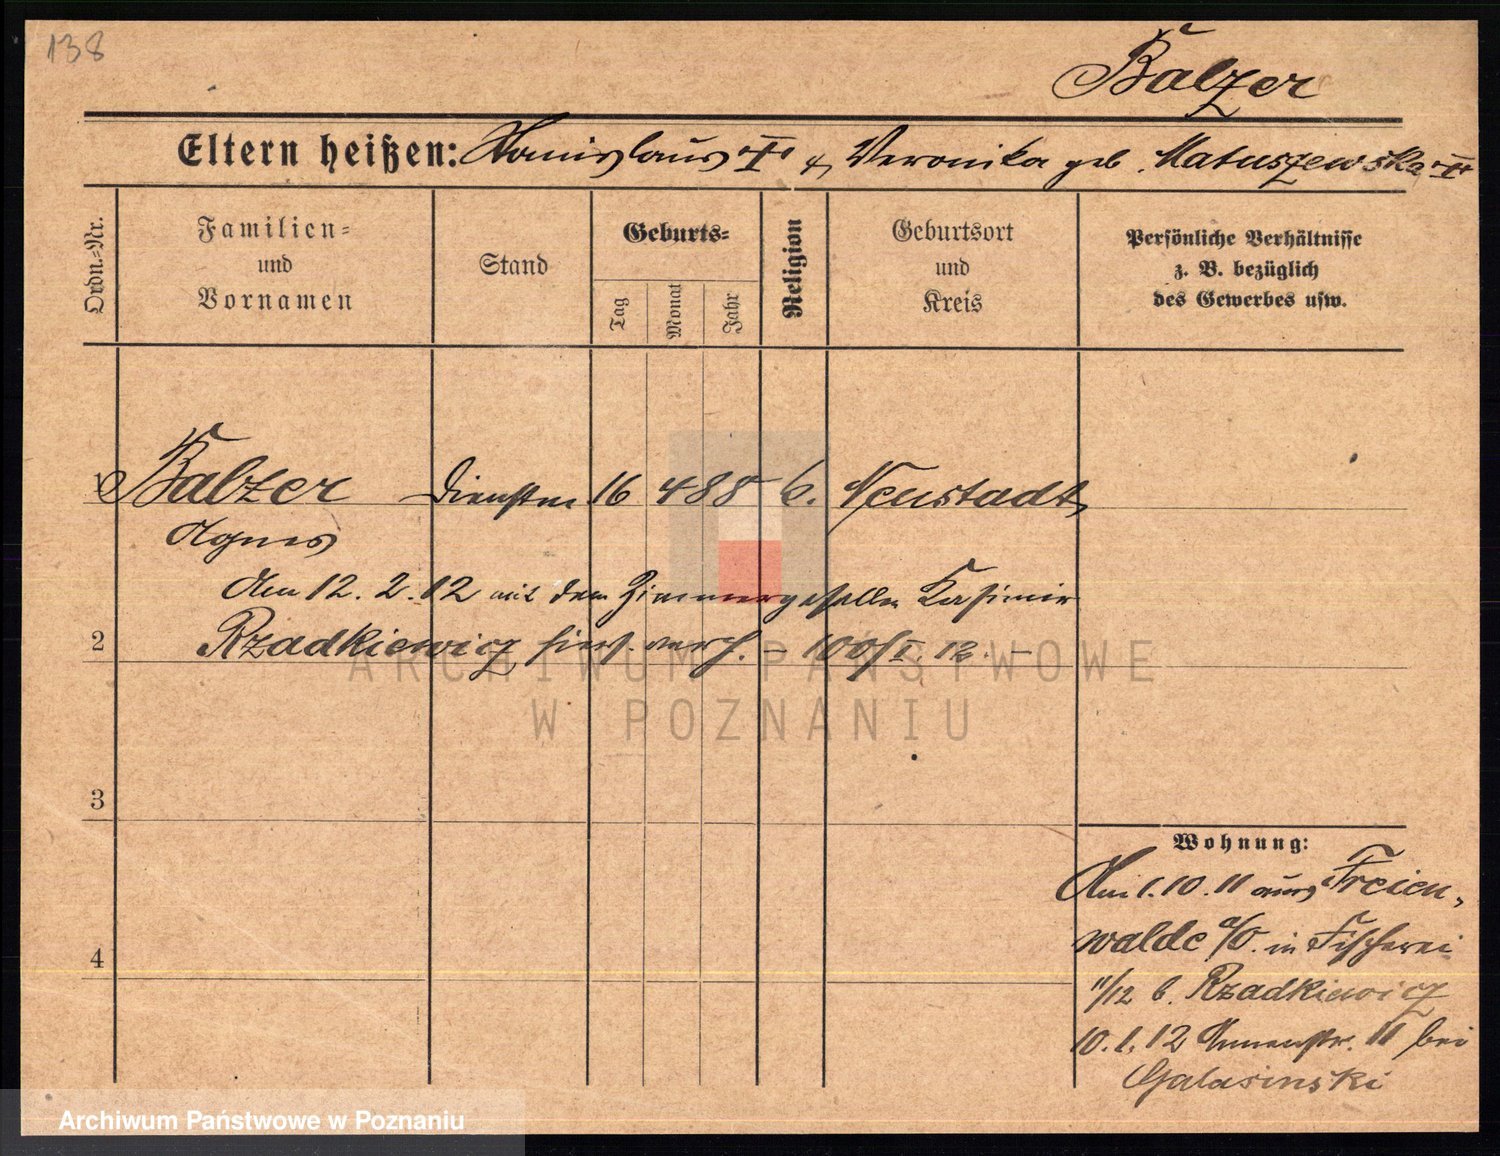 138
Balzer
Eltern heißen: Stanislaus † & Veronika geb. Matuszewska †
Ordn.-Nr.
Familien-
und
Vornamen
Stand
Geburts-
Tag
Monat
Jahr
Religion
Geburtsort
und
Kreis
Persönliche Verhältnisse
z. B. bezüglich
des Gewerbes usw.
1 Balzer Dienstm 16 4 88 k. Neustadt
Agnes
Am 12. 2. 12 mit dem Zimmergesellen Kasimir
2 Rzadkiewicz hier verh. – 100/I. 12. –
3
4
Wohnung:
Am 1. 10. 11 aus Freien-
walde a/O. in Fischerei
11/12 b. Rzadkiewicz
10. 1. 12 Annenstr. 11 bei
Galasinski
ARCHIWUM PAŃSTWOWE
W POZNANIU
Archiwum Państwowe w Poznaniu